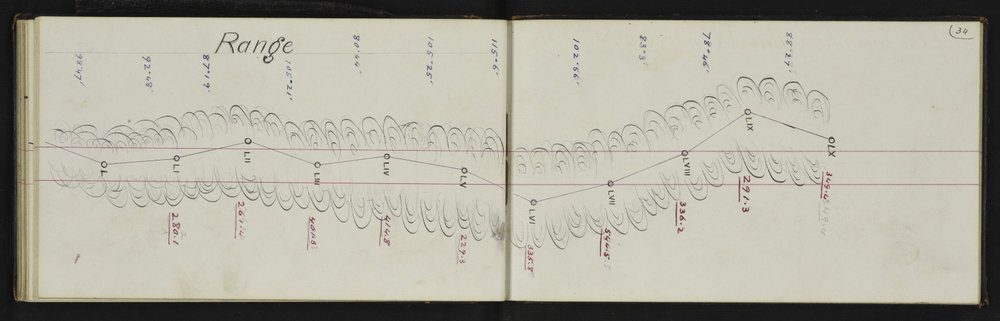 34
Range
92°48'
87°19'
105°21'
80°44'
105°25'
115°6'
102°56'
83°3'
78°46'
88°27'
L
LI
LII
LIII
LIV
LV
LVI
LVII
LVIII
LIX
LX
280.1
414.8
229.3
335.8
544.5
336.2
291.3
349.4